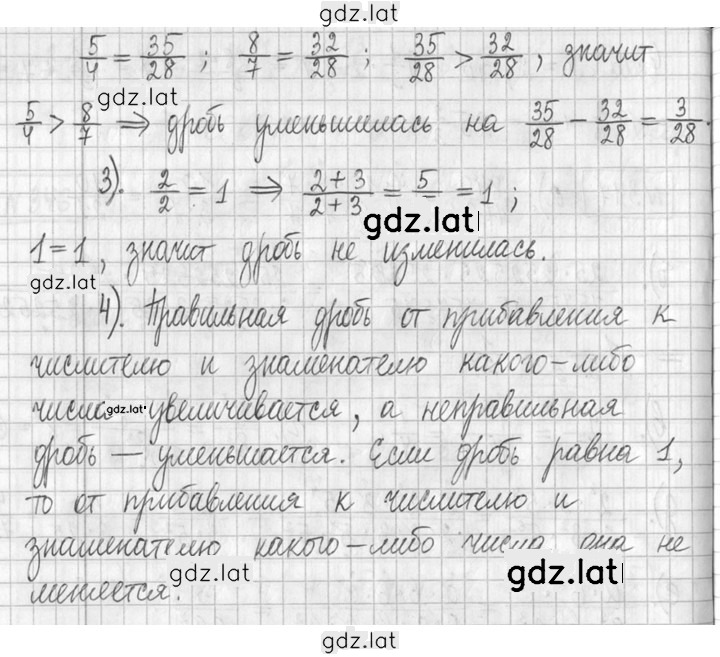 gdz.lat
5/4 = 35/28 ; 8/7 = 32/28 ; 35/28 > 32/28 , значит
gdz.lat
5/4 > 8/7 ⇒ дробь уменьшилась на 35/28 − 32/28 = 3/28.
3). 2/2 = 1 ⇒ 2+3/2+3 = 5 = 1 ;
gdz.lat
1 = 1 , значит дробь не изменилась.
gdz.lat
4). Правильная дробь от прибавления к
числителю и знаменателю какого-либо
числа gdz.lat увеличивается, а неправильная
дробь — уменьшается. Если дробь равна 1,
то от прибавления к числителю и
знаменателю какого-либо числа она не
gdz.lat gdz.lat
меняется.
gdz.lat